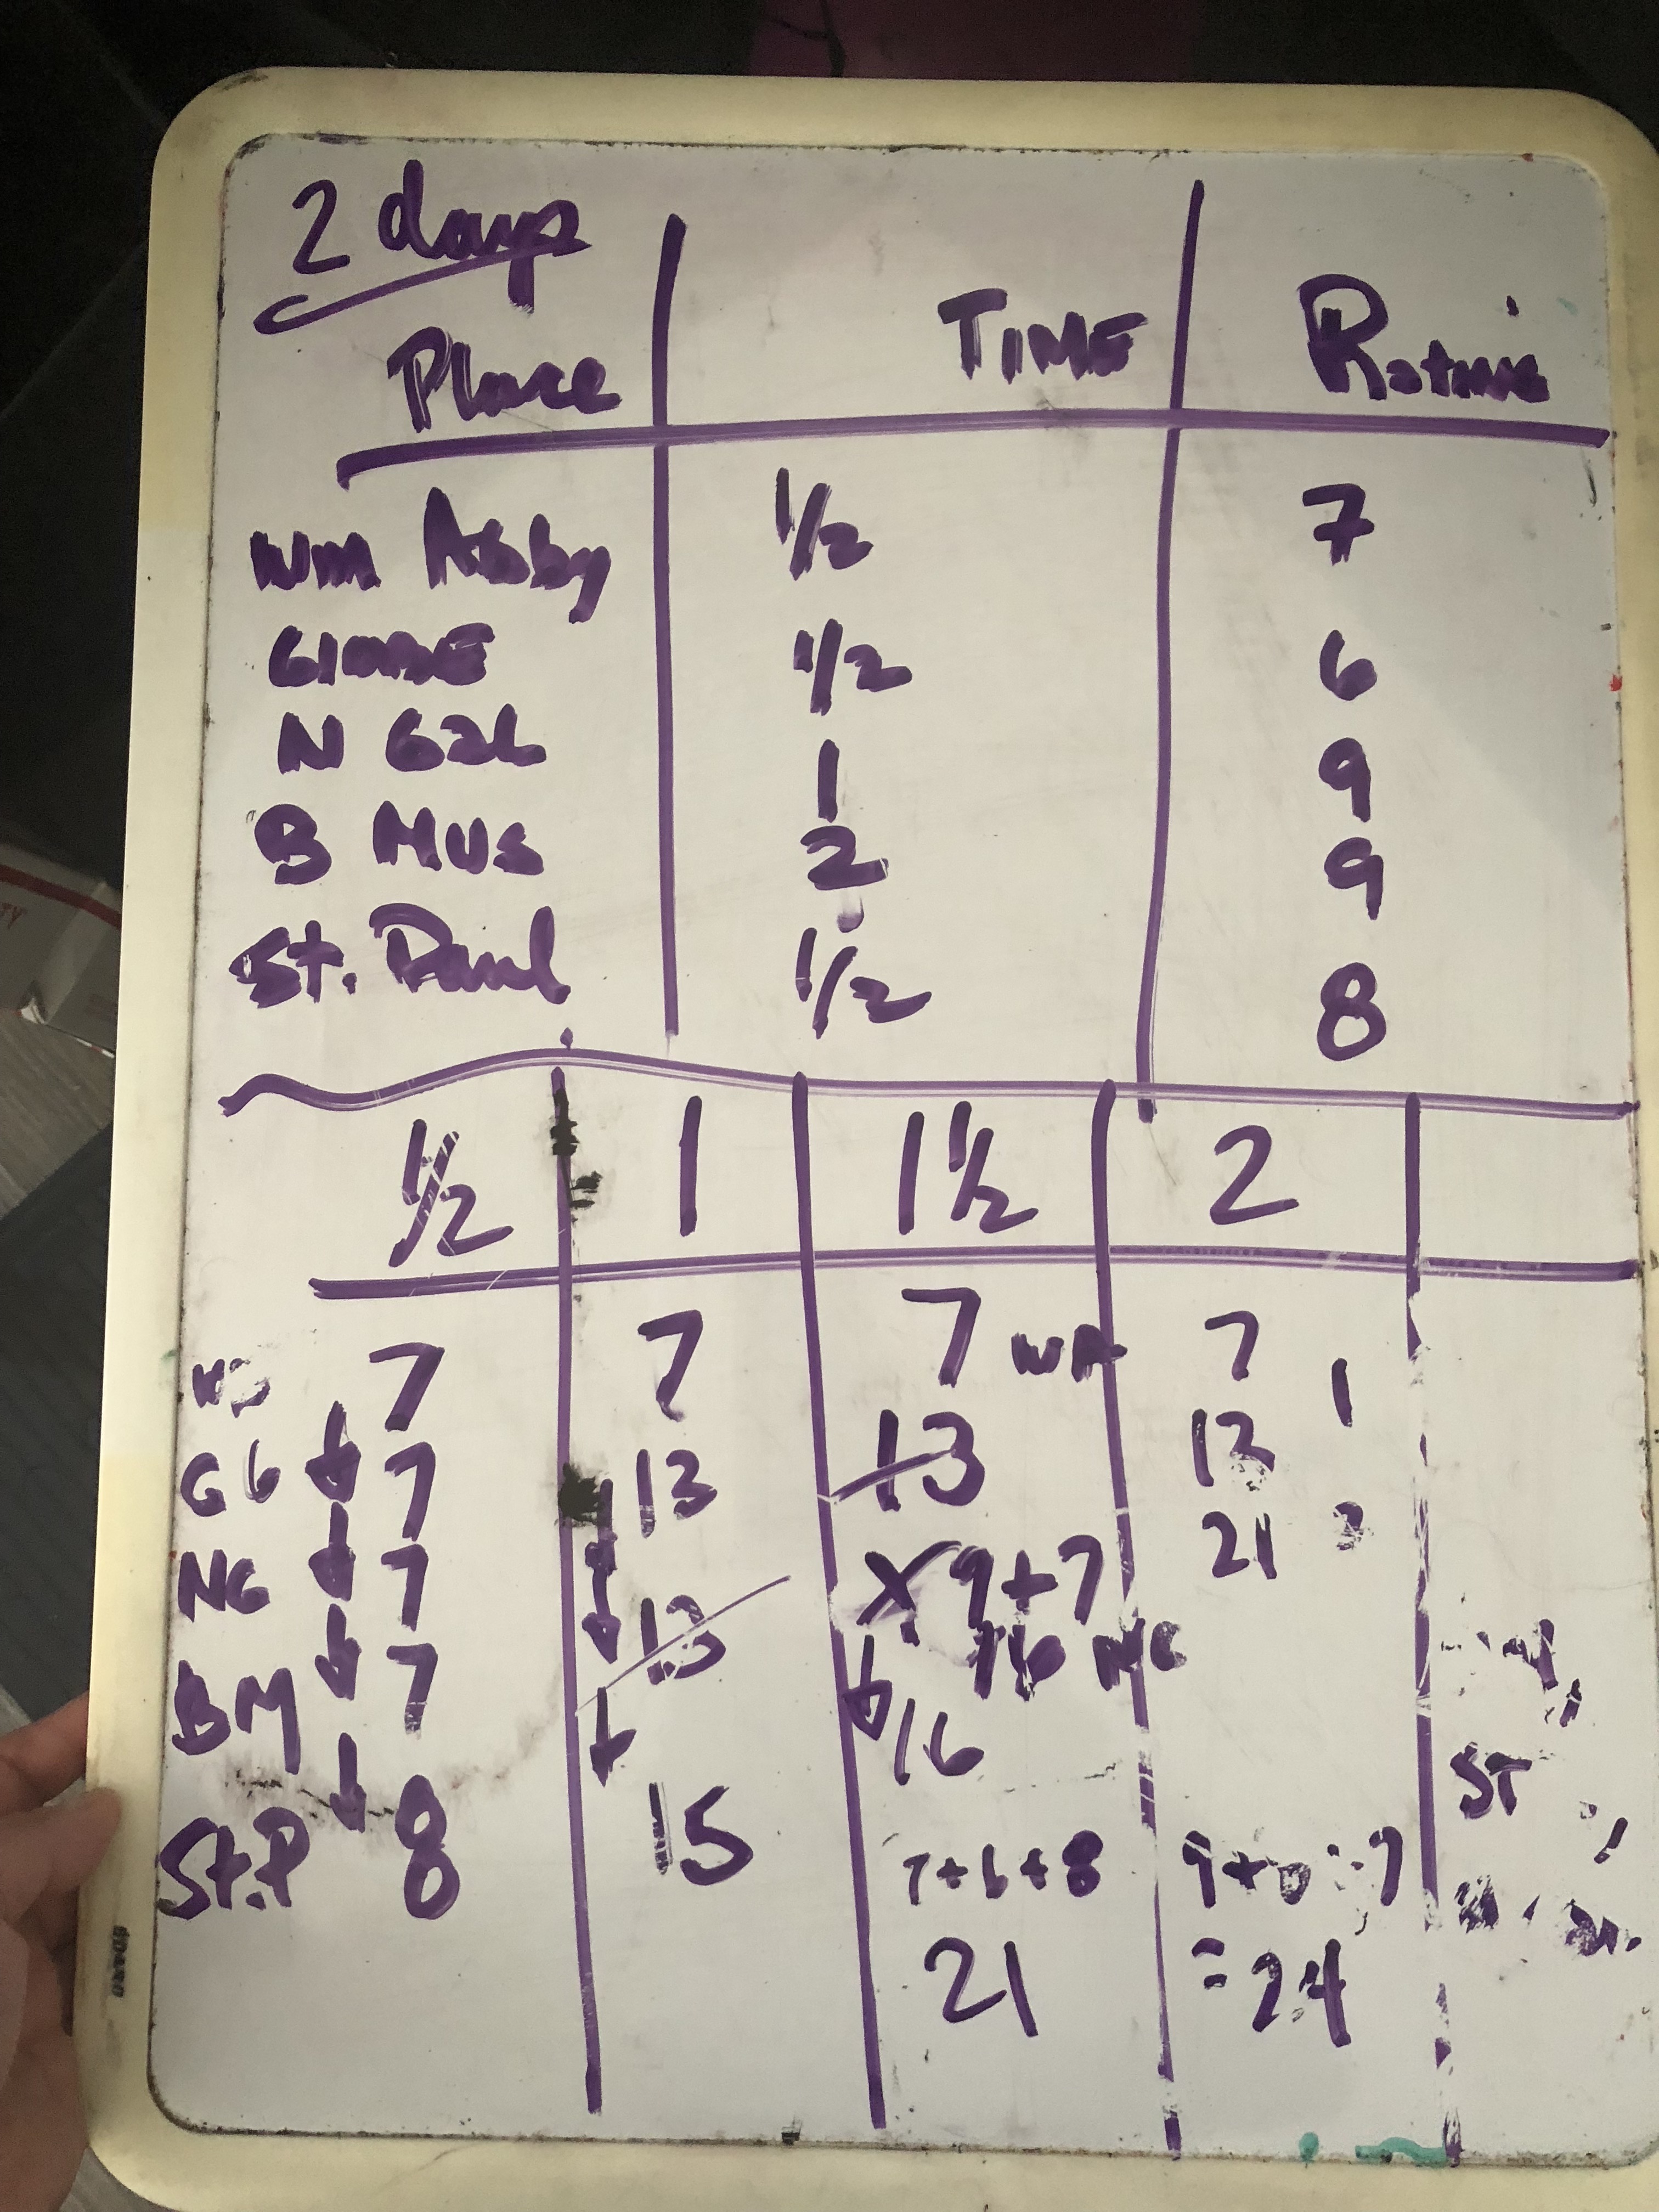 2 days
Place TIME Rating
WM Abby 1/2 7
GlOBE 1/2 6
N Gal 1 9
B Mus 2 9
St. Paul 1/2 8
1/2 1 1 1/2 2
7 7 7 WA 7 1
G 6 7 13 13 13
NG 7 13 9+7 21
16 NG
BM 7 16
ST
St.P 8 15 7+6+8 9+
21 =24